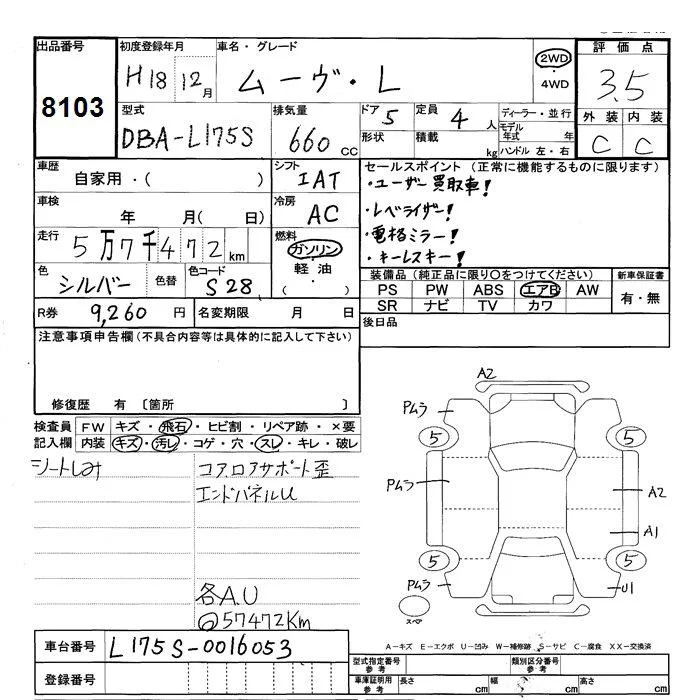 出品番号 8103
初度登録年月 H18 12月
車名・グレード ムーヴ・L
2WD・4WD
評価点 3.5
外装 C 内装 C
型式 DBA-L175S
排気量 660 CC
ドア 5 形状
定員 4人 積載 kg
ディーラー・並行
モデル年式 年
ハンドル 左・右
車歴 自家用・( )
シフト IAT
セールスポイント (正常に機能するものに限ります)
・ユーザー買取車!
・レベライザー!
・電格ミラー!
・キーレスキー!
車検 年 月( 日)
冷房 AC
走行 5万7千472km
燃料 ガソリン・軽油・( )
色 シルバー 色替 色コード S28
装備品 (純正品に限り〇をつけてください)
PS PW ABS エアB AW
SR ナビ TV カワ
新車保証書 有・無
R券 9,260 円 名変期限 月 日
後日品
注意事項申告欄 (不具合内容等は具体的に記入して下さい)
修復歴 有 〔箇所 〕
検査員記入欄
FW キズ・飛石・ヒビ割・リペア跡・×要
内装 キズ・汚レ・コゲ・穴・スレ・キレ・破レ
シートしみ
コアロアサポート歪
エンドパネルU
各A.U
@57472Km
A2
Pムラ
5 5
Pムラ A2
A1
5 5
Pムラ U1
スペア
A-キズ E-エクボ U-凹み W-補修跡 S-サビ C-腐食 XX-交換済
車台番号 L175S-0016053
登録番号
型式指定番号 参考
類別区分番号 参考
車庫証明用 参考 長さ cm 幅 cm 高さ cm